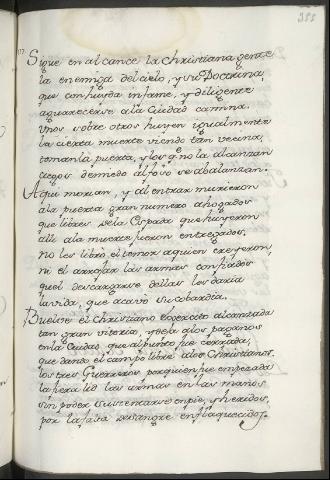 385
Sigue en alcance la christiana gente
la enemiga del cielo, y su Doctrina,
que con huyda infame, y diligente
aguarecerse ala Ciudad camina.
Vnos sobre otros huyen igualmente
la cierta muerte viendo tan vecina,
toman la puerta, y los q̃ no la alcanzan
ciegos de miedo al foso se abalanzan.
Aqui morian, y al entrar murieron
ala puerta gran numero ahogados
que libres de la Espada que huyeron
alli ala muerte fueron entregados.
No les libro el temor a quien creyeron
ni el arrojar las armas confiados
quel descargarse dellas les daria
la vida, que acavò su cobardia.
Buelve el Christiano exercito alcanzada
tan gran vitoria, y deja alos paganos
en la Ciudad, que al punto fue cerrada,
quedando el campo libre alos Christianos.
los tres Guerreros por quien fue empezada
la fiera lid las armas en las manos
sin poder sustentarse en pie, y heridos,
por la falta de sangre enflaquecidos.